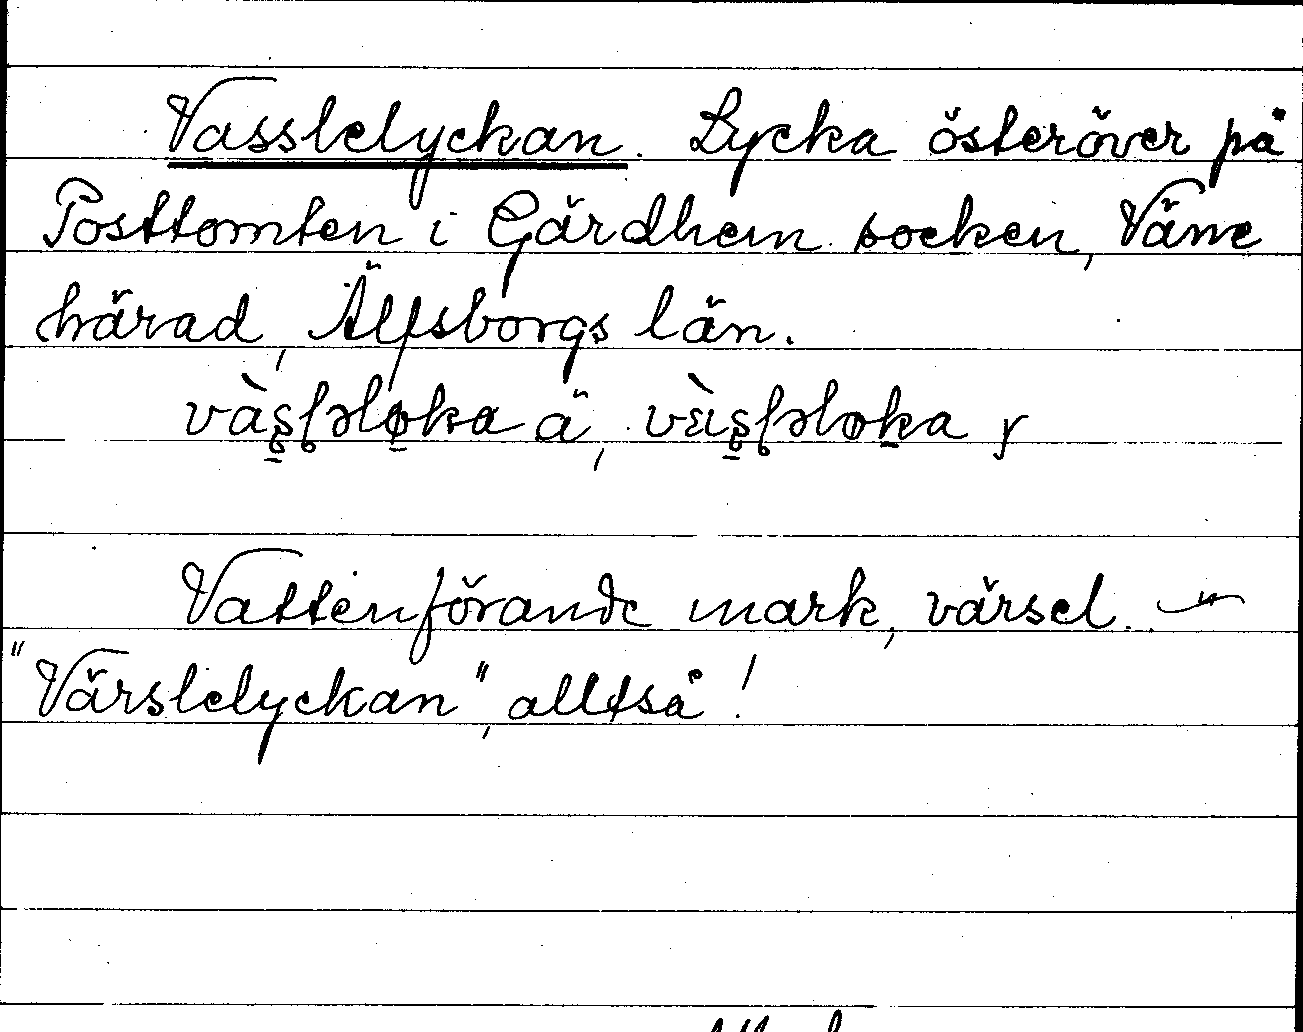 Vasslelyckan. Lycka österöver på
Posttomten i Gärdhem socken, Väne
härad, Älfsborgs län.
ä, y
Vattenförande mark, värsel. —"—
"Värslelyckan", alltså!